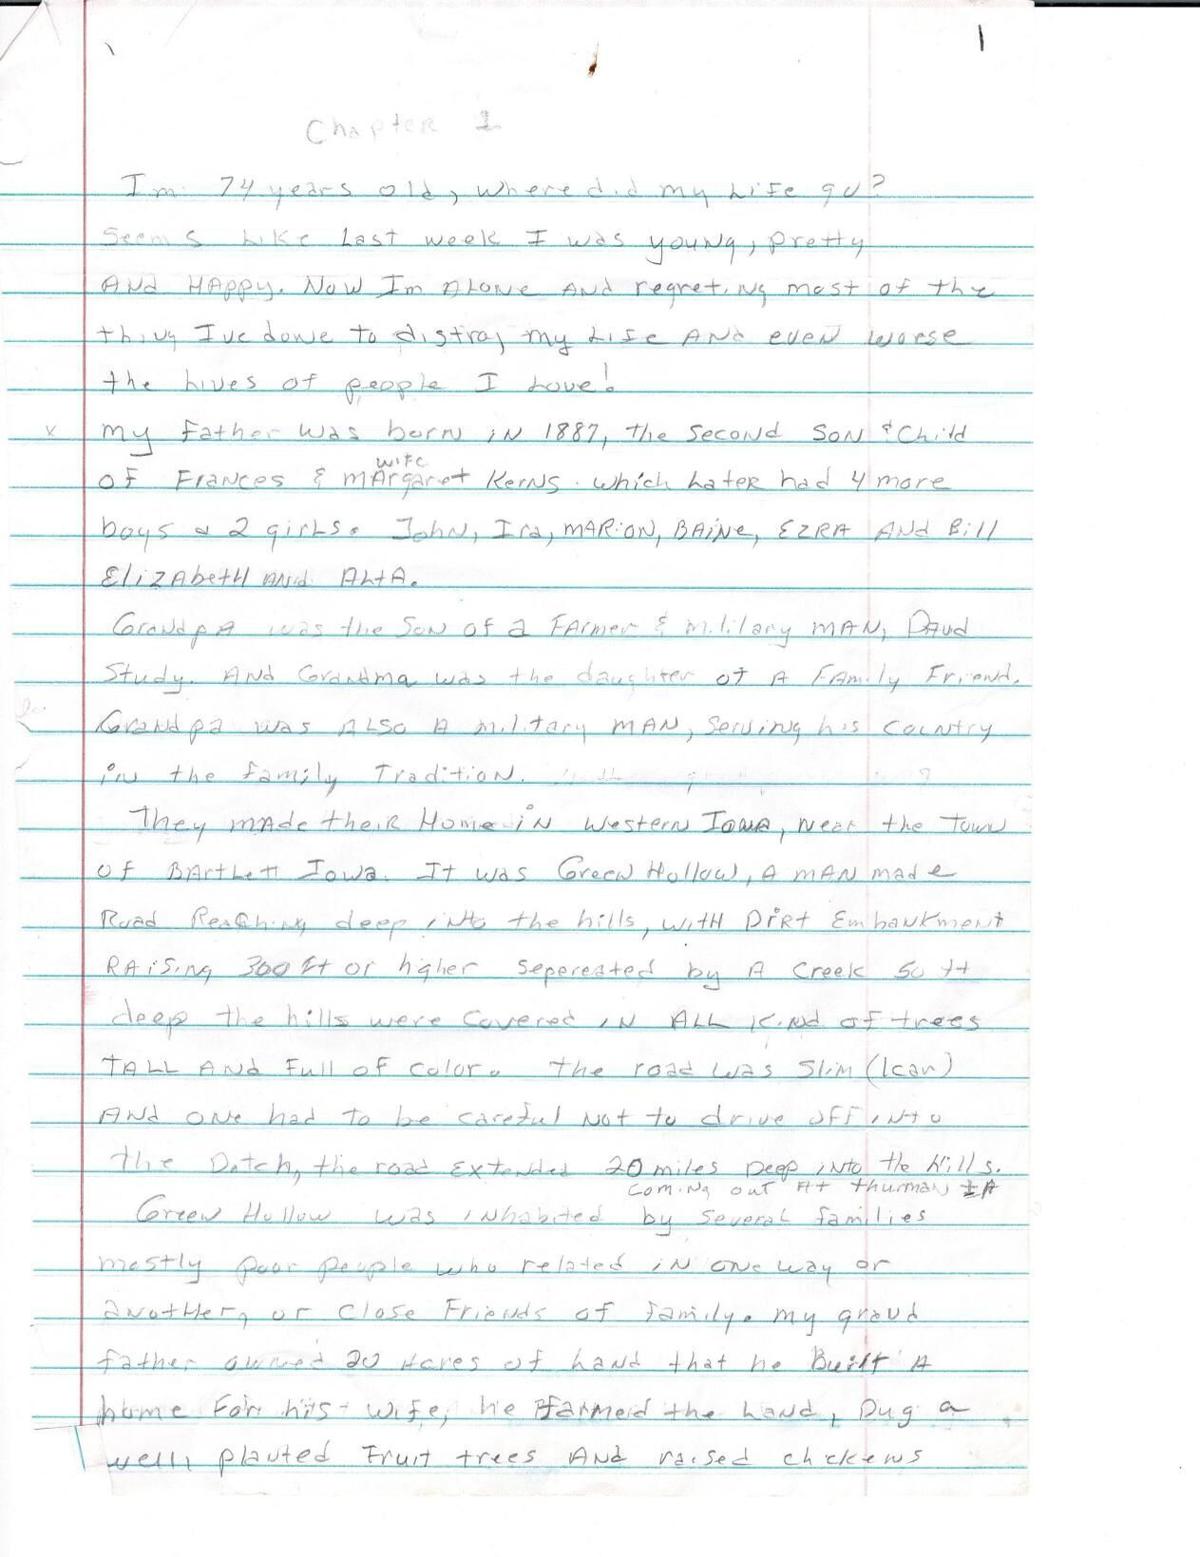 1
Chapter 1
Im 74 years old, where did my Life go?
Seems Like Last week I was young, pretty
And HAppy. Now Im ALONE AND regreting most of the
thing I've done to distroy my Life And even worse
the Lives of people I Love!
my father was born in 1887, the second son & Child
wife
of Frances & MArgaret Kerns. which Later had 4 more
boys & 2 girls. John, Ira, MARION, BAINE, EZRA AND Bill
ElizAbetH AND ALtA.
GrandpA was the Son of a FArmer & military MAN,
Study. AND Grandma was the daughter of A FAmily Friend.
Grandpa was ALSO A military MAN, serving his country
in the family Tradition.
They mAde theiR Home in western Iowa, near the Town
of BArtLett Iowa. It was Green Hollow, A mAN made
Road ReAching deep into the hills, witH DiRt Embankment
RAising 300 ft or higher sepereated by A Creek 50 ft
deep the hills were covered in ALL kind of trees
TALL AND Full of color. the road was Slim (lean)
AND one had to be careful Not to drive off into
the Ditch, the road Extended 20 miles Deep into the hills.
coming out At thurman IA
Green Hollow was inhabited by several families
mostly poor people who related in one way or
anotHer, or Close Friends of family. my grand
father owned 20 Acres of Land that he Built A
home For his wife, he farmed the Land, Dug a
well, planted Fruit trees AND raised chickens